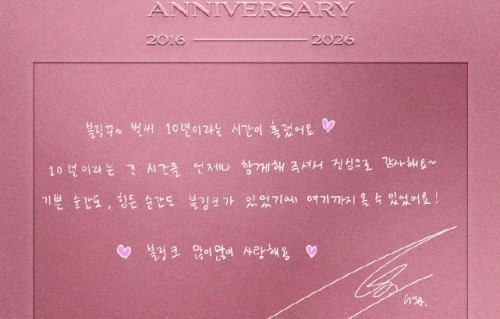 ANNIVERSARY
2016 2026
블링쿠~ 벌써 10년이라는 시간이 흘렀어요
10년이라는 긴 시간을 언제나 함께해 주셔서 진심으로 감사해요~
기쁜 순간도, 힘든 순간도 블링크가 있었기에 여기까지 올 수 있었어요!
블링크 많이많이 사랑해용
LISA.